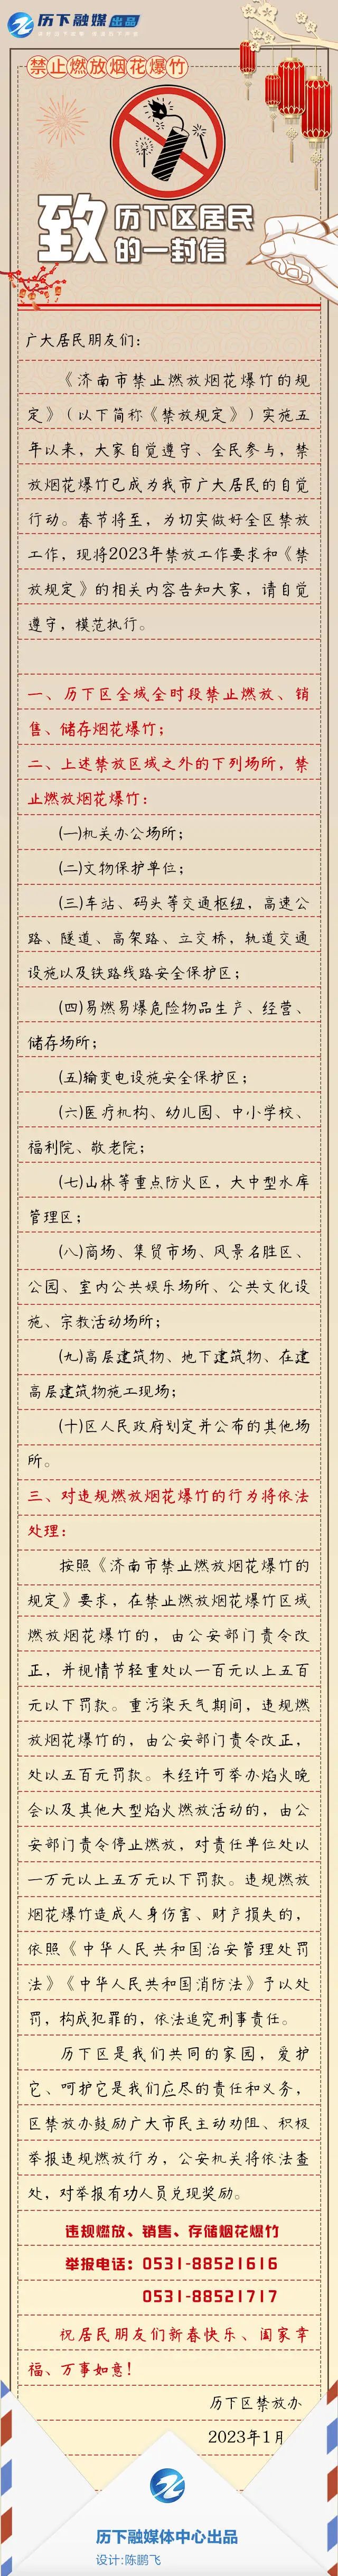 历下融媒出品
禁止燃放烟花爆竹
致
历下区居民
的一封信
广大居民朋友们：
《济南市禁止燃放烟花爆竹的规
定》（以下简称《禁放规定》）实施五
年以来，大家自觉遵守、全民参与，禁
放烟花爆竹已成为我市广大居民的自觉
行动。春节将至，为切实做好全区禁放
工作，现将2023年禁放工作要求和《禁
放规定》的相关内容告知大家，请自觉
遵守，模范执行。
一、历下区全域全时段禁止燃放、销
售、储存烟花爆竹；
二、上述禁放区域之外的下列场所，禁
止燃放烟花爆竹：
(一)机关办公场所；
(二)文物保护单位；
(三)车站、码头等交通枢纽，高速公
路、隧道、高架路、立交桥，轨道交通
设施以及铁路线路安全保护区；
(四)易燃易爆危险物品生产、经营、
储存场所；
(五)输变电设施安全保护区；
(六)医疗机构、幼儿园、中小学校、
福利院、敬老院；
(七)山林等重点防火区，大中型水库
管理区；
(八)商场、集贸市场、风景名胜区、
公园、室内公共娱乐场所、公共文化设
施、宗教活动场所；
(九)高层建筑物、地下建筑物、在建
高层建筑物施工现场；
(十)区人民政府划定并公布的其他场
所。
三、对违规燃放烟花爆竹的行为将依法
处理：
按照《济南市禁止燃放烟花爆竹的
规定》要求，在禁止燃放烟花爆竹区域
燃放烟花爆竹的，由公安部门责令改
正，并视情节轻重处以一百元以上五百
元以下罚款。重污染天气期间，违规燃
放烟花爆竹的，由公安部门责令改正，
处以五百元罚款。未经许可举办焰火晚
会以及其他大型焰火燃放活动的，由公
安部门责令停止燃放，对责任单位处以
一万元以上五万元以下罚款。违规燃放
烟花爆竹造成人身伤害、财产损失的，
依照《中华人民共和国治安管理处罚
法》《中华人民共和国消防法》予以处
罚，构成犯罪的，依法追究刑事责任。
历下区是我们共同的家园，爱护
它、呵护它是我们应尽的责任和义务，
区禁放办鼓励广大市民主动劝阻、积极
举报违规燃放行为，公安机关将依法查
处，对举报有功人员兑现奖励。
违规燃放、销售、存储烟花爆竹
举报电话：0531-88521616
0531-88521717
祝居民朋友们新春快乐、阖家幸
福、万事如意！
历下区禁放办
2023年1月
历下融媒体中心出品
设计:陈鹏飞